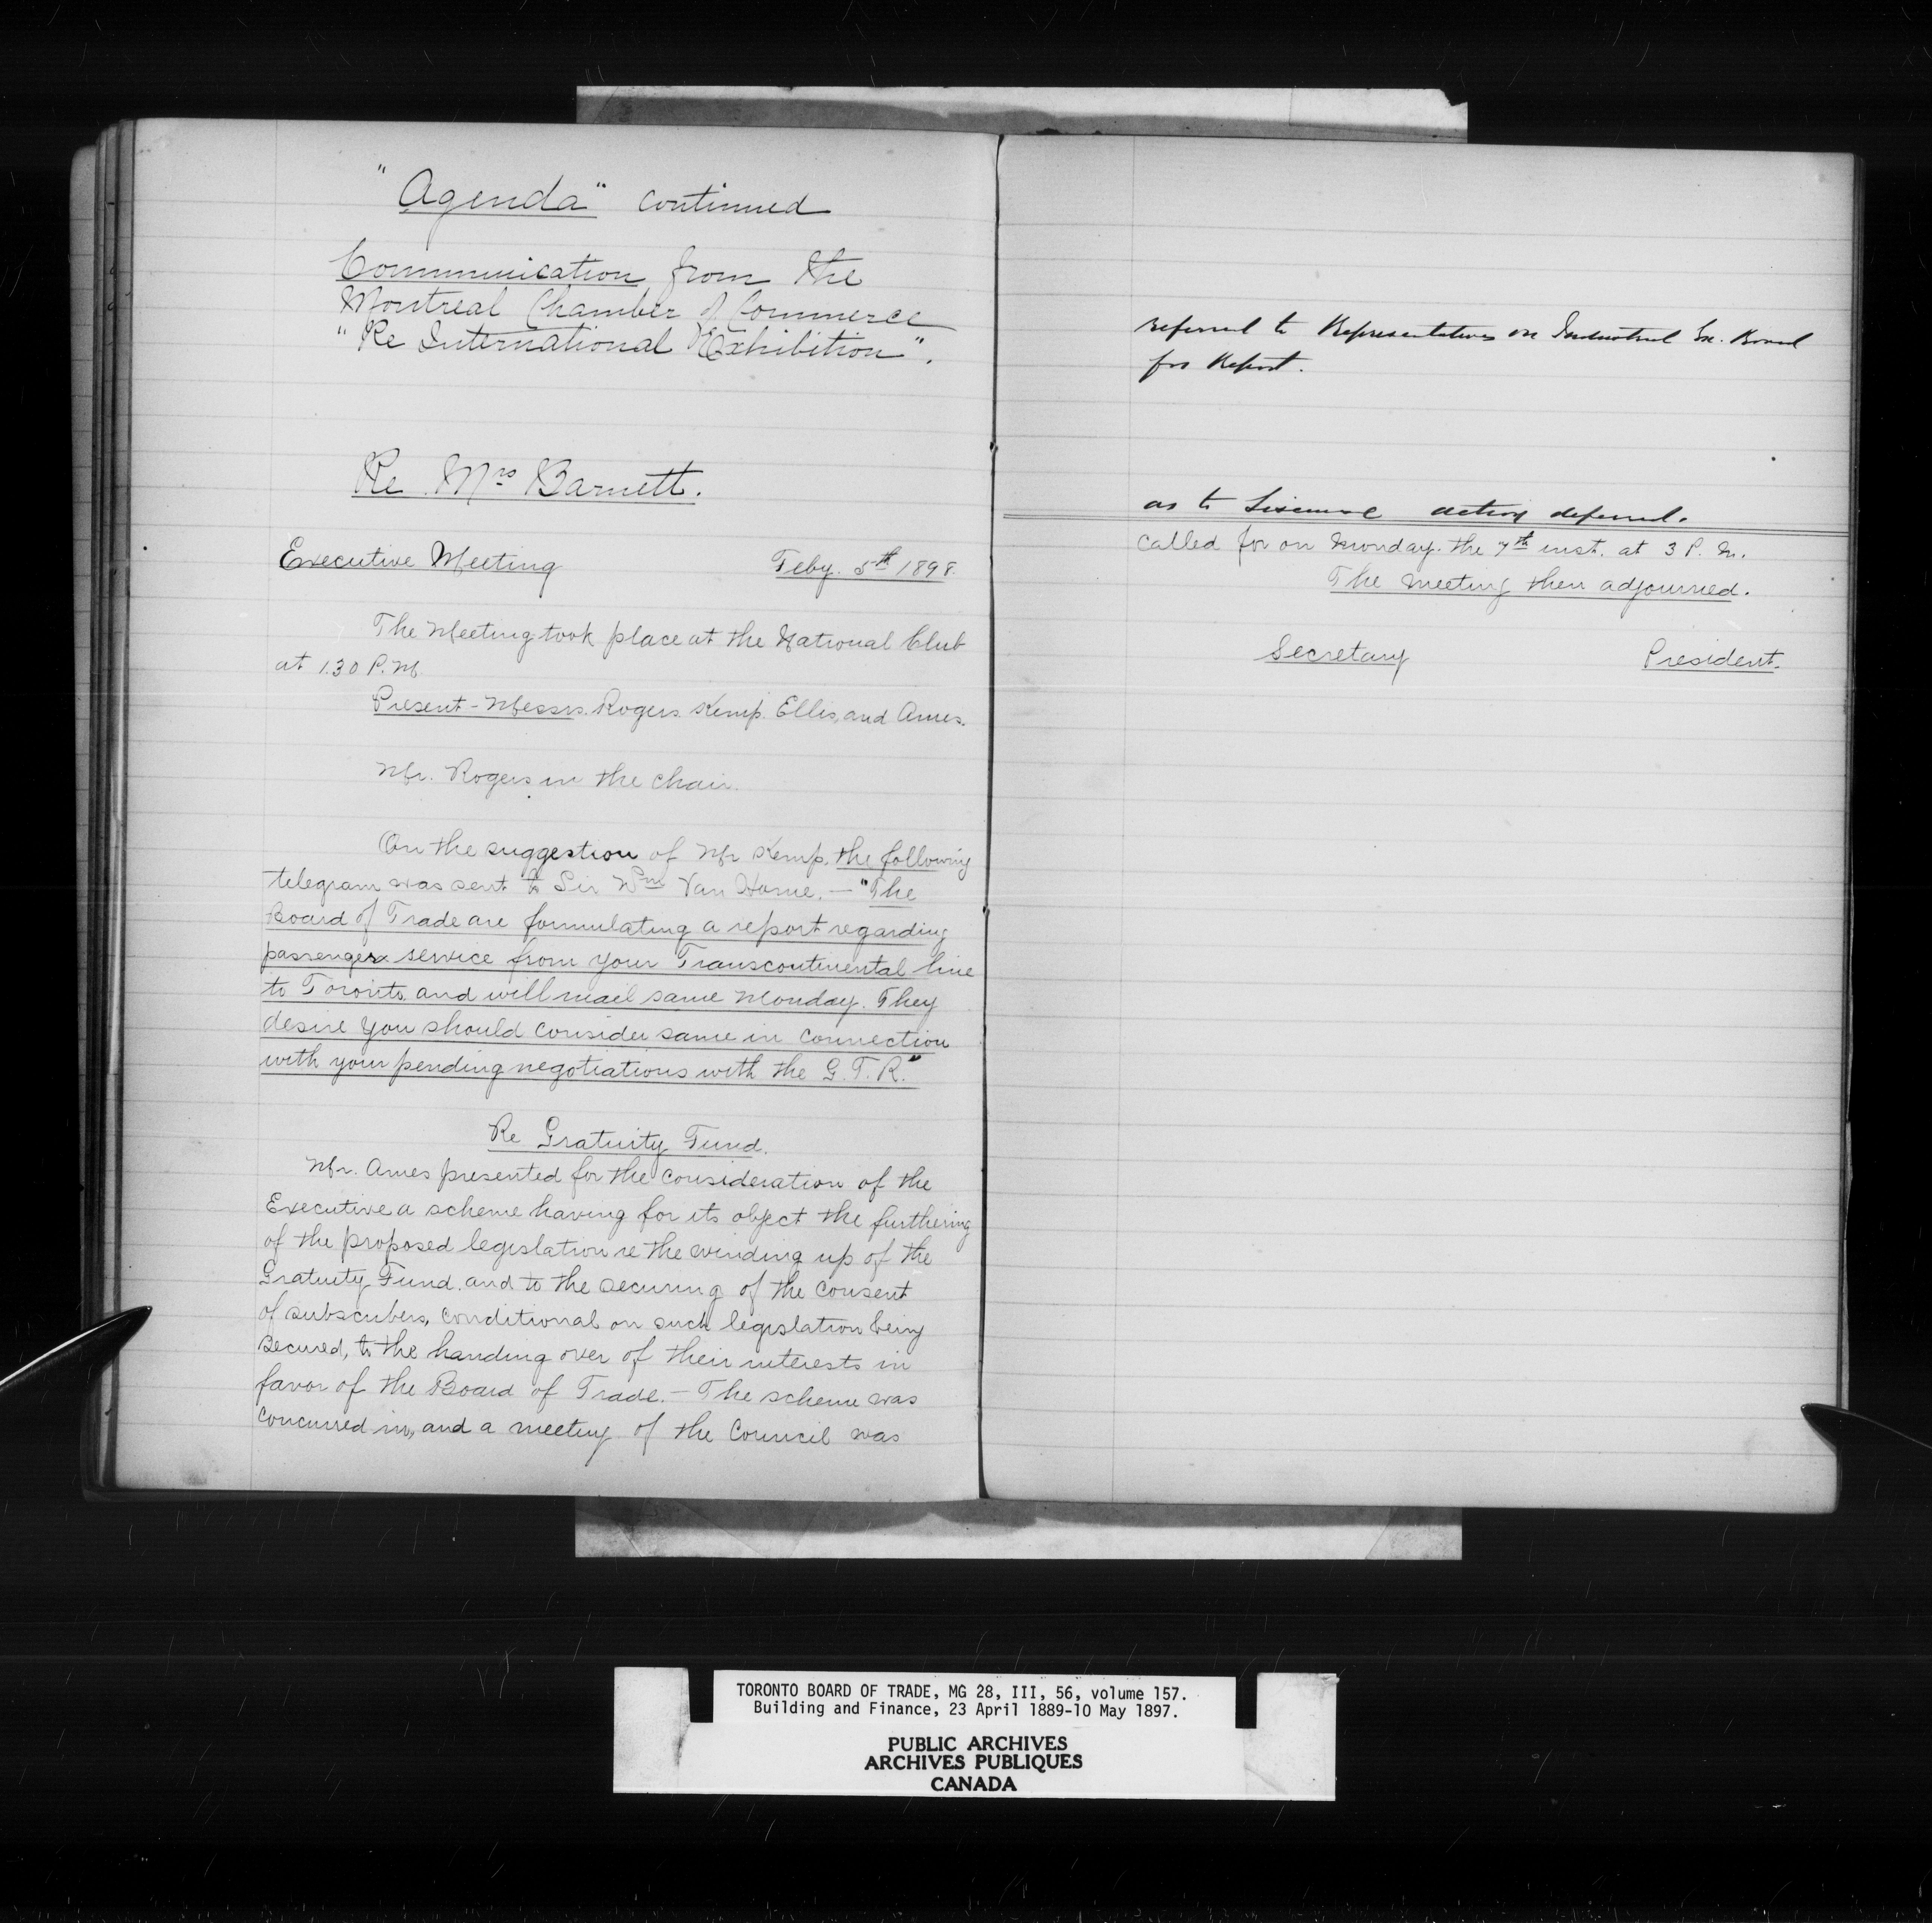 "Agenda" continued
Communication from the
Montreal Chamber of Commerce
"Re International Exhibition".
Re Mrs Barnett.
Executive Meeting Feby. 5th 1898.
The Meeting took place at the National Club
at 1.30 P.M.
Present - Messrs. Rogers. Kemp. Ellis, and Ames.
Mr. Rogers in the chair.
On the suggestion of Mr Kemp, the following
telegram was sent to Sir Wm Van Horne. — "The
Board of Trade are formulating a report regarding
passenger service from your Transcontinental line
to Toronto and will mail same Monday. They
desire you should consider same in connection
with your pending negotiations with the G.T.R."
Re Gratuity Fund.
Mr. Ames presented for the consideration of the
Executive a scheme having for its object the furthering
of the proposed legislation re the winding up of the
Gratuity Fund. and to the securing of the consent
of subscribers, conditional on such legislation being
secured, to the handing over of their interests in
favor of the Board of Trade. — The scheme was
concurred in, and a meeting of the Council was
referred to Representatives on Industrial Ex. Board
for Report.
as to action deferred.
called for on Monday. the 7th inst. at 3 P.M.
The meeting then adjourned.
Secretary President.
TORONTO BOARD OF TRADE, MG 28, III, 56, volume 157.
Building and Finance, 23 April 1889-10 May 1897.
PUBLIC ARCHIVES
ARCHIVES PUBLIQUES
CANADA